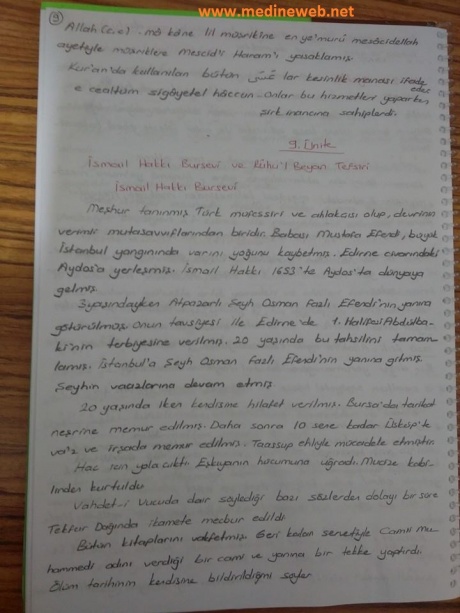 www.medineweb.net
9
Allah (c.c) mâ kâne lil müşrikîne en ya'murû mesâcidellah
ayetiyle müşriklere Mescid'i Haram'ı yasaklamış
Kur'an'da kullanılan bütün lar kesinlik manası ifade
eder
e cealtum sigâyetel hâccın. Onlar bu hizmetleri yaparken
şirk inancına sahiplerdi.
9. Ünite
İsmail Hakkı Bursevi ve Rûhu'l Beyan Tefsiri
İsmail Hakkı Bursevi
Meşhur tanınmış Türk müfessiri ve ahlakçısı olup, devrinin
verimli mutasavvıflarından biridir. Babası Mustafa Efendi, büyük
İstanbul yangınında varını yoğunu kaybetmiş. Edirne civarındaki
Aydos'a yerleşmiş. İsmail Hakkı 1653'te Aydos'ta dünyaya
gelmiş.
3 yaşındayken Atpazarlı Şeyh Osman Fazlı Efendi'nin yanına
götürülmüş onun tavsiyesi ile Edirne'de 1. Halifesi Abdülba-
ki'nin terbiyesine verilmiş. 20 yaşında bu tahsilini tamam-
lamış. İstanbul'a Şeyh Osman Fazlı Efendi'nin yanına gitmiş
Şeyhin vaazlarına devam etmiş
20 yaşında iken kendisine hilafet verilmiş. Bursa'da tarikat
neşrine memur edilmiş. Daha sonra 10 sene kadar Üsküp'te
va'z ve irşada memur edilmiş. Taassup ehliyle mücadele etmiştir.
Hac için yola çıktı. Eşkıyanın hücumuna uğradı. Mucize kabi-
linden kurtuldu.
Vahdet-i Vucuda dair söylediği bazı sözlerden dolayı bir süre
Tekfur Dağında ikamete mecbur edildi.
Bütün kitaplarını vakfetmiş. Geri kalan servetiyle Camii Mu-
hammedi adını verdiği bir cami ve yanına bir tekke yaptırdı.
Ölüm tarihinin kendisine bildirildiğini söyler